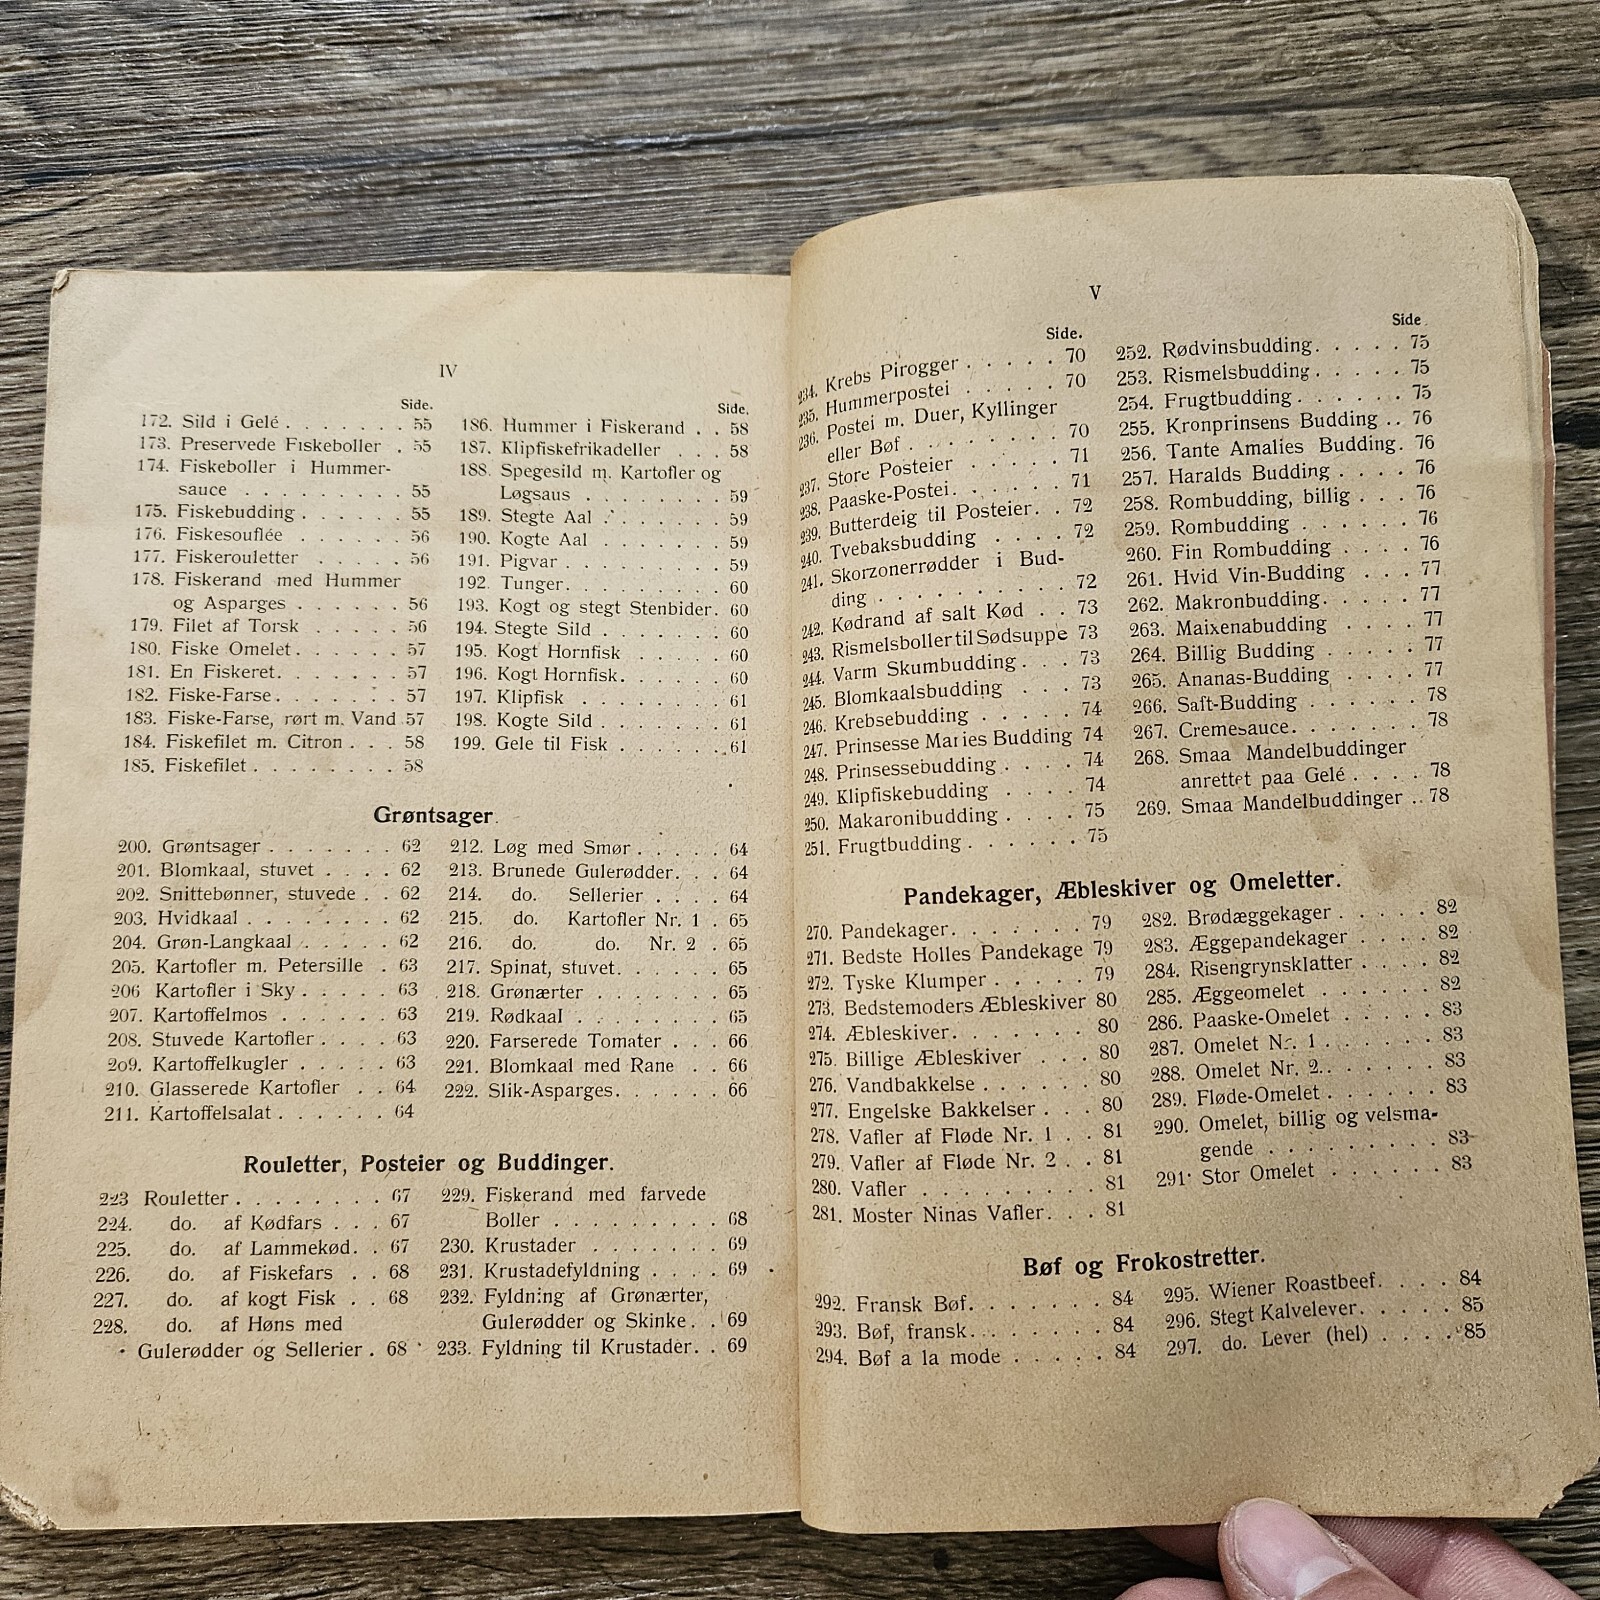 IV
Side.
172. Sild i Gelé . . . . . . . 55
173. Preservede Fiskeboller . 55
174. Fiskeboller i Hummer-
sauce . . . . . . . . . 55
175. Fiskebudding . . . . . . 55
176. Fiskesouflée . . . . . . 56
177. Fiskerouletter . . . . . 56
178. Fiskerand med Hummer
og Asparges . . . . . . 56
179. Filet af Torsk . . . . . 56
180. Fiske Omelet . . . . . . 57
181. En Fiskeret . . . . . . . 57
182. Fiske-Farse . . . . . . . 57
183. Fiske-Farse, rørt m. Vand 57
184. Fiskefilet m. Citron . . . 58
185. Fiskefilet . . . . . . . . 58
Side.
186. Hummer i Fiskerand . . 58
187. Klipfiskefrikadeller . . . 58
188. Spegesild m. Kartofler og
Løgsaus . . . . . . . . 59
189. Stegte Aal . . . . . . . 59
190. Kogte Aal . . . . . . . 59
191. Pigvar . . . . . . . . . 59
192. Tunger . . . . . . . . . 60
193. Kogt og stegt Stenbider. 60
194. Stegte Sild . . . . . . . 60
195. Kogt Hornfisk . . . . . 60
196. Kogt Hornfisk . . . . . . 60
197. Klipfisk . . . . . . . . 61
198. Kogte Sild . . . . . . . 61
199. Gele til Fisk . . . . . . 61
Grøntsager.
200. Grøntsager . . . . . . . 62
201. Blomkaal, stuvet . . . . 62
202. Snittebønner, stuvede . . 62
203. Hvidkaal . . . . . . . . 62
204. Grøn-Langkaal . . . . . 62
205. Kartofler m. Petersille . 63
206 Kartofler i Sky . . . . . 63
207. Kartoffelmos . . . . . . 63
208. Stuvede Kartofler . . . . 63
209. Kartoffelkugler . . . . . 63
210. Glasserede Kartofler . . 64
211. Kartoffelsalat . . . . . . 64
212. Løg med Smør . . . . . 64
213. Brunede Gulerødder . . . 64
214. do. Sellerier . . . . 64
215. do. Kartofler Nr. 1 . 65
216. do. do. Nr. 2 . 65
217. Spinat, stuvet . . . . . . 65
218. Grønærter . . . . . . . 65
219. Rødkaal . . . . . . . . 65
220. Farserede Tomater . . . 66
221. Blomkaal med Rane . . 66
222. Slik-Asparges . . . . . . 66
Rouletter, Posteier og Buddinger.
223 Rouletter . . . . . . . . 67
224. do. af Kødfars . . . 67
225. do. af Lammekød . . 67
226. do. af Fiskefars . . 68
227. do. af kogt Fisk . . 68
228. do. af Høns med
Gulerødder og Sellerier . 68
229. Fiskerand med farvede
Boller . . . . . . . . . 68
230. Krustader . . . . . . . 69
231. Krustadefyldning . . . . 69
232. Fyldning af Grønærter,
Gulerødder og Skinke . . 69
233. Fyldning til Krustader . . 69
V
Side.
234. Krebs Pirogger . . . . . 70
235. Hummerpostei . . . . . 70
236. Postei m. Duer, Kyllinger
eller Bøf . . . . . . . . 70
237. Store Posteier . . . . . 71
238. Paaske-Postei . . . . . . 71
239. Butterdeig til Posteier . . 72
240. Tvebaksbudding . . . . 72
241. Skorzonerrødder i Bud-
ding . . . . . . . . . . 72
242. Kødrand af salt Kød . . 73
243. Rismelsboller til Sødsuppe 73
244. Varm Skumbudding . . . 73
245. Blomkaalsbudding . . . 73
246. Krebsebudding . . . . . 74
247. Prinsesse Maries Budding 74
248. Prinsessebudding . . . . 74
249. Klipfiskebudding . . . . 74
250. Makaronibudding . . . . 75
251. Frugtbudding . . . . . . 75
Side.
252. Rødvinsbudding . . . . . 75
253. Rismelsbudding . . . . . 75
254. Frugtbudding . . . . . . 75
255. Kronprinsens Budding . . 76
256. Tante Amalies Budding . 76
257. Haralds Budding . . . . 76
258. Rombudding, billig . . . 76
259. Rombudding . . . . . . 76
260. Fin Rombudding . . . . 76
261. Hvid Vin-Budding . . . 77
262. Makronbudding . . . . . 77
263. Maixenabudding . . . . 77
264. Billig Budding . . . . . 77
265. Ananas-Budding . . . . 77
266. Saft-Budding . . . . . . 78
267. Cremesauce . . . . . . . 78
268. Smaa Mandelbuddinger
anrettet paa Gelé . . . . 78
269. Smaa Mandelbuddinger . . 78
Pandekager, Æbleskiver og Omeletter.
270. Pandekager . . . . . . . 79
271. Bedste Holles Pandekage 79
272. Tyske Klumper . . . . . 79
273. Bedstemoders Æbleskiver 80
274. Æbleskiver . . . . . . . 80
275. Billige Æbleskiver . . . 80
276. Vandbakkelse . . . . . . 80
277. Engelske Bakkelser . . . 80
278. Vafler af Fløde Nr. 1 . . 81
279. Vafler af Fløde Nr. 2 . . 81
280. Vafler . . . . . . . . . 81
281. Moster Ninas Vafler . . . 81
282. Brødæggekager . . . . . 82
283. Æggepandekager . . . . 82
284. Risengrynsklatter . . . . 82
285. Æggeomelet . . . . . . 82
286. Paaske-Omelet . . . . . 83
287. Omelet Nr. 1 . . . . . . 83
288. Omelet Nr. 2. . . . . . . 83
289. Fløde-Omelet . . . . . . 83
290. Omelet, billig og velsma-
gende . . . . . . . . . 83
291. Stor Omelet . . . . . . 83
Bøf og Frokostretter.
292. Fransk Bøf . . . . . . . 84
293. Bøf, fransk . . . . . . . 84
294. Bøf a la mode . . . . . 84
295. Wiener Roastbeef . . . . 84
296. Stegt Kalvelever . . . . . 85
297. do. Lever (hel) . . . . 85